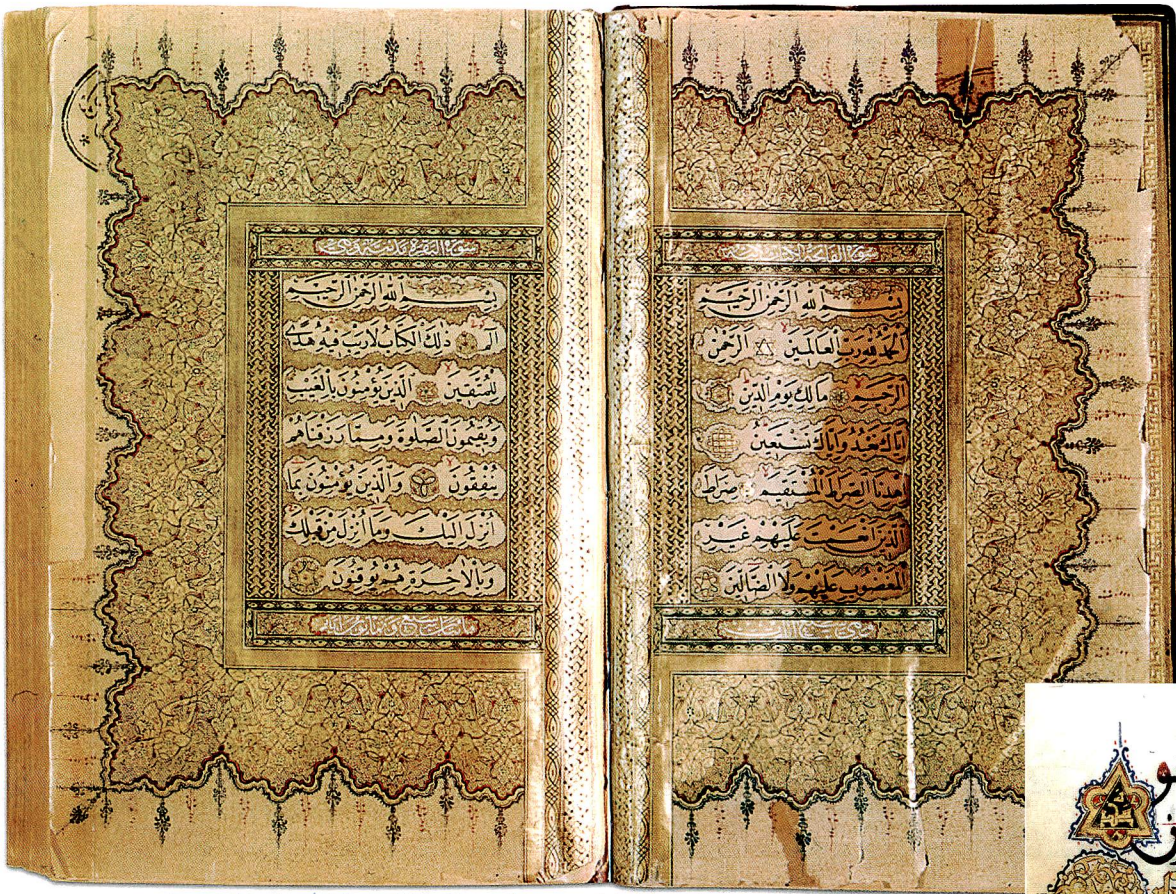 سورة الفاتحة
بِسْمِ اللهِ الرَّحْمٰنِ الرَّحِيمِ
اَلْحَمْدُ لِلهِ رَبِّ الْعَالَمِينَ اَلرَّحْمٰنِ
الرَّحِيمِ مَالِكِ يَوْمِ الدِّينِ
اِيَّاكَ نَعْبُدُ وَاِيَّاكَ نَسْتَعِينُ
اِهْدِنَا الصِّرَاطَ الْمُسْتَقِيمَ صِرَاطَ
الَّذِينَ اَنْعَمْتَ عَلَيْهِمْ غَيْرِ
الْمَغْضُوبِ عَلَيْهِمْ وَلَا الضَّالِّينَ
سورة البقرة
بِسْمِ اللهِ الرَّحْمٰنِ الرَّحِيمِ
الم ذٰلِكَ الْكِتَابُ لَا رَيْبَ فِيهِ هُدًى
لِلْمُتَّقِينَ اَلَّذِينَ يُؤْمِنُونَ بِالْغَيْبِ
وَيُقِيمُونَ الصَّلٰوةَ وَمِمَّا رَزَقْنَاهُمْ
يُنْفِقُونَ وَالَّذِينَ يُؤْمِنُونَ بِمَا
اُنْزِلَ اِلَيْكَ وَمَا اُنْزِلَ مِنْ قَبْلِكَ
وَبِالْاٰخِرَةِ هُمْ يُوقِنُونَ